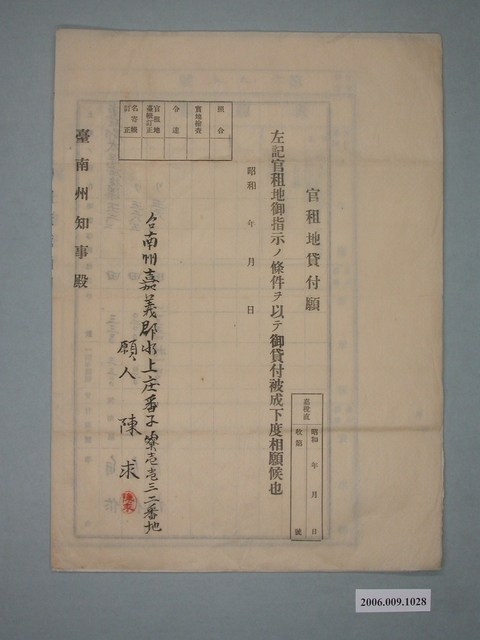 官租地貸付願
左記官租地御指示ノ條件ヲ以テ御貸付被成下度相願候也
昭和　年　月　日
台南州嘉義郡水上庄番子寮壱壱三二番地
願人　陳　求
臺南州知事殿
嘉稅庶
昭和　年　月　日
收第　號
照合
實地檢查
令達
官租地臺帳訂正
名寄帳訂正
陳求
2006.009.1028